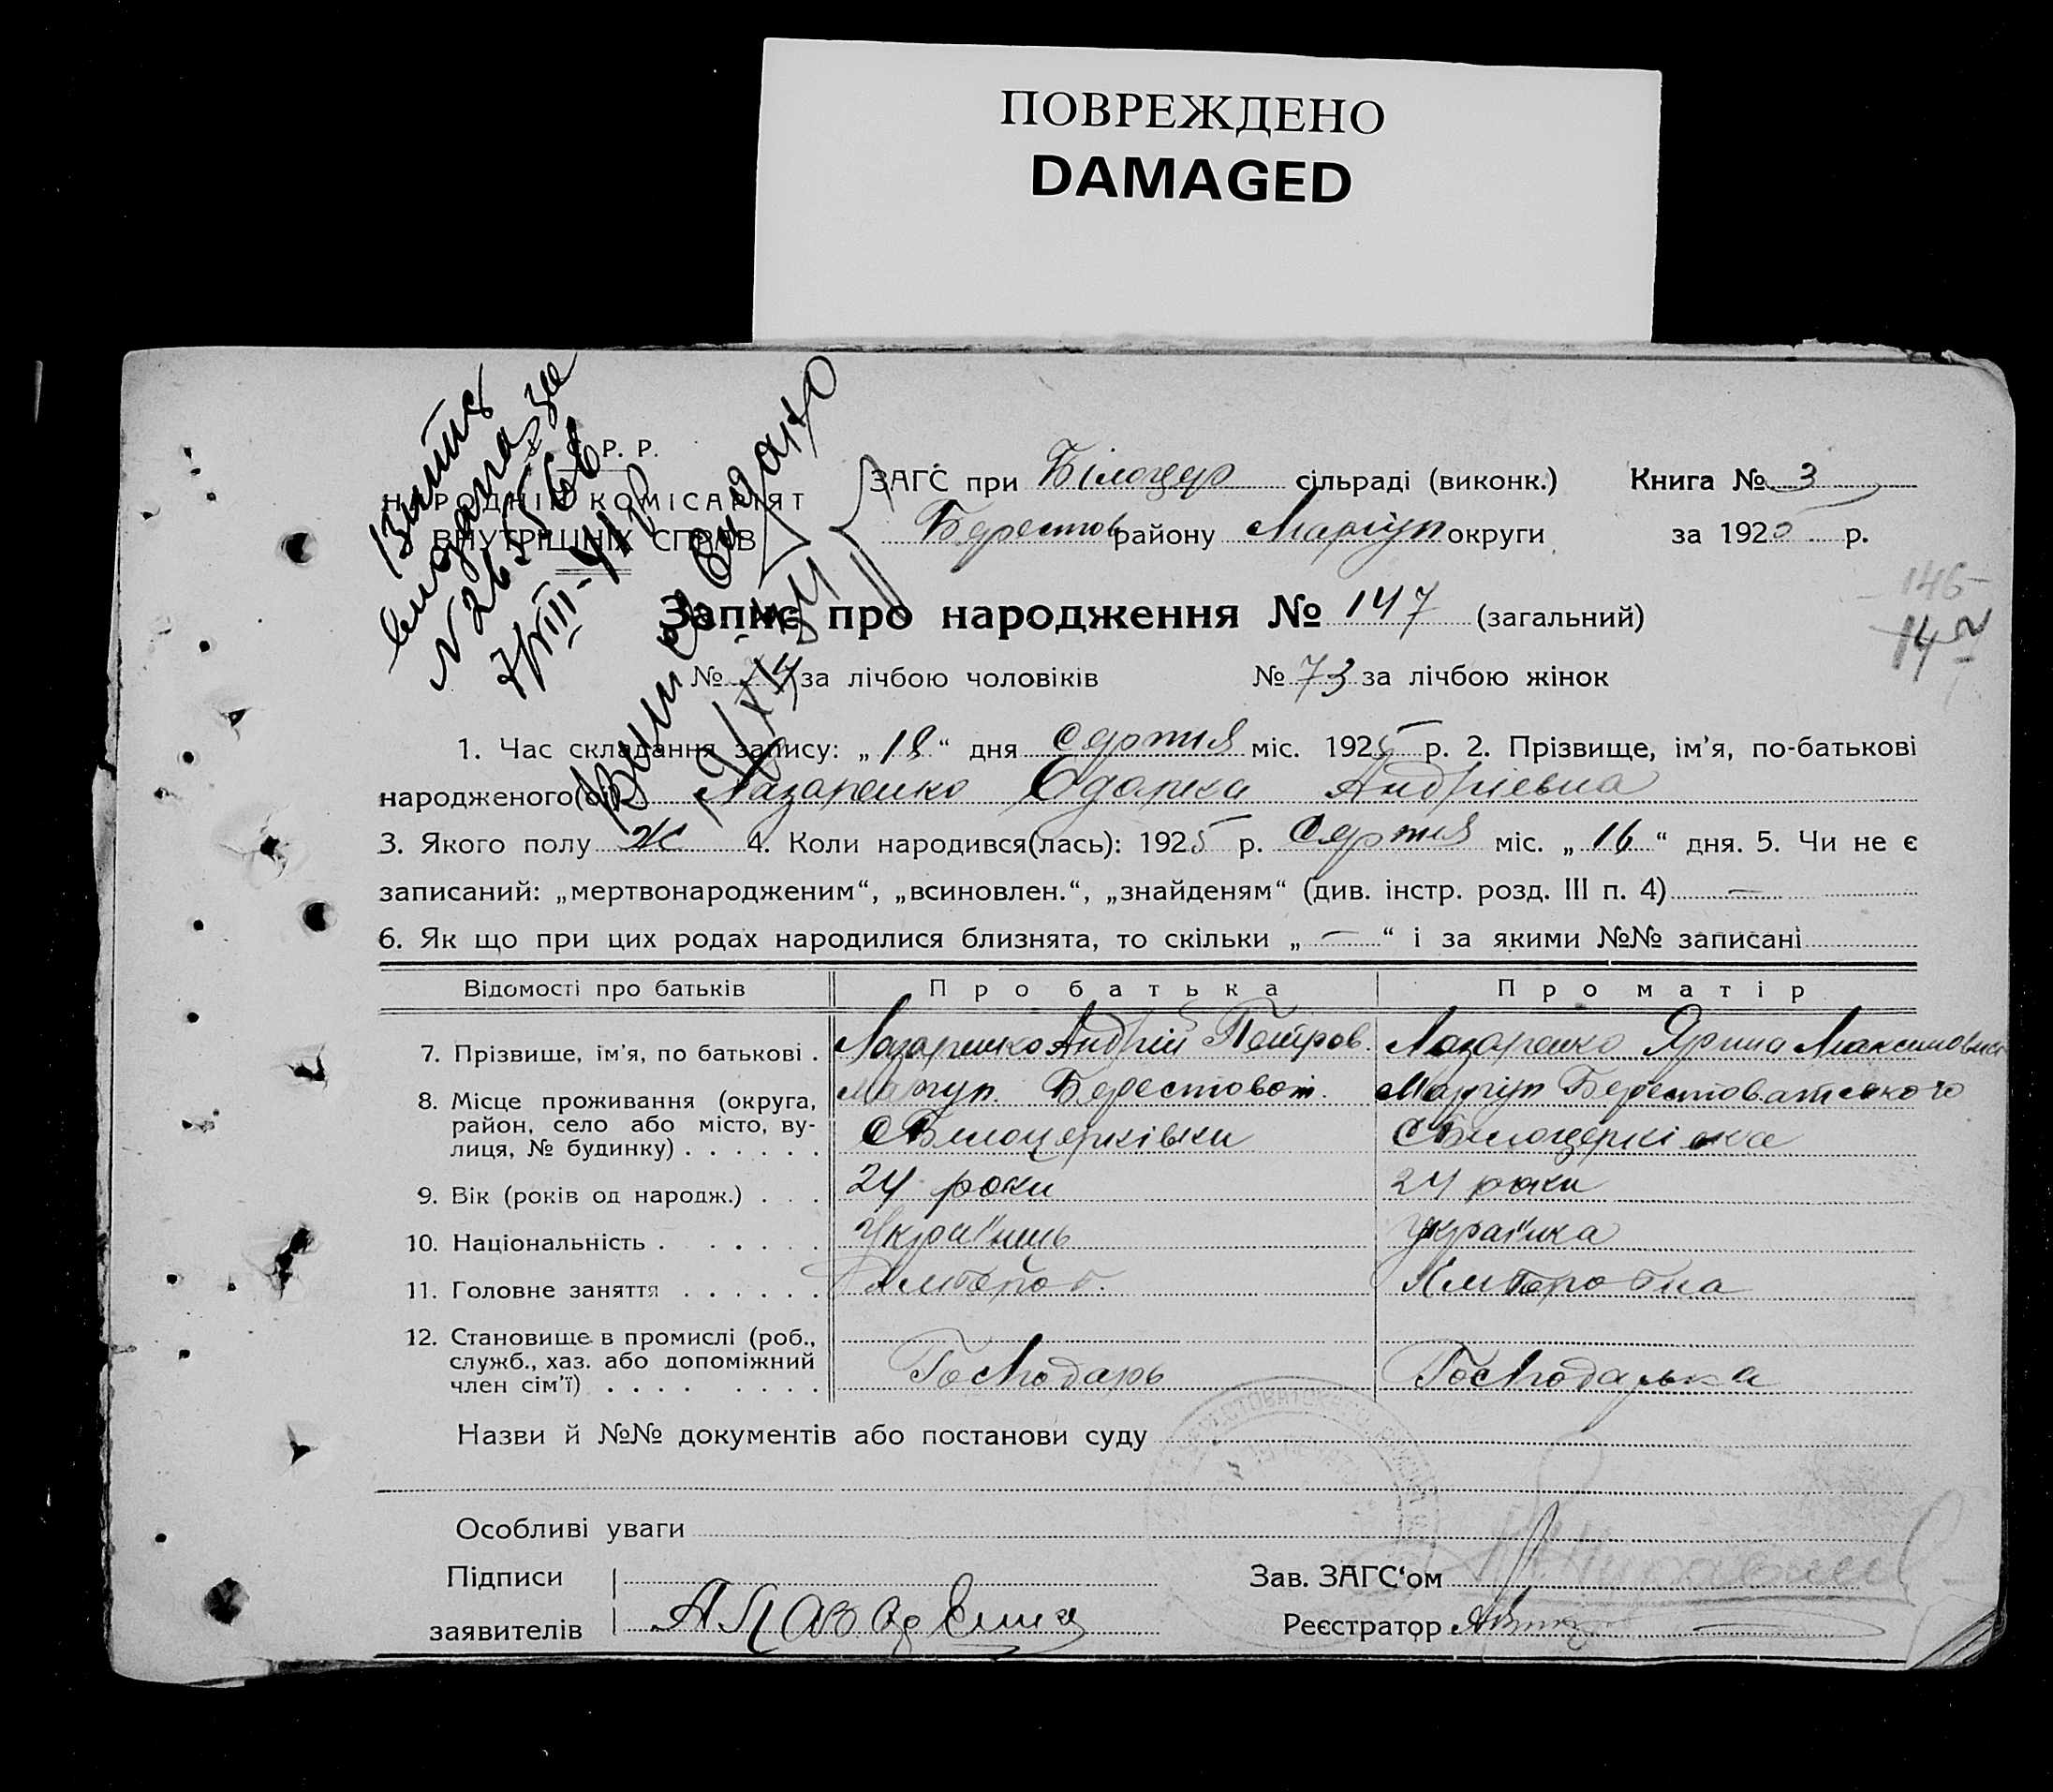 ПОВРЕЖДЕНО
DAMAGED
Р. Р.
НАРОДНІЙ КОМІСАРІЯТ
ВНУТРІШНІХ СПРАВ
видана за
ЗАГС при Білоцер сільраді (виконк.) Книга № 3
Берестов району Маріуп округи за 1925 р.
Запис про народження № 147 (загальний)
146
147
№ за лічбою чоловіків № 73 за лічбою жінок
1. Час складання запису: „ 18 “ дня Серпня міс. 1925 р. 2. Прізвище, ім'я, по-батькові
народженого(ої) Лазаренко Одарка Андрієвна
3. Якого полу Ж 4. Коли народився(лась): 1925 р. Серпня міс. „ 16 “ дня. 5. Чи не є
записаний: „мертвонародженим“, „всиновлен.“, „знайденям“ (див. інстр. розд. III п. 4) —
6. Як що при цих родах народилися близнята, то скільки „ — “ і за якими №№ записані
Відомості про батьків Про батька Про матір
7. Прізвище, ім'я, по батькові . Лазаренко Андрій Петров. Лазаренко Ярина Максимовна
8. Місце проживання (округа, Маріуп. Берестоват. Маріуп Берестоватського
район, село або місто, ву-
лиця, № будинку) . . . . . . С Билоцерківки С Билоцерківка
9. Вік (років од народж.) . . . 24 роки 24 роки
10. Національність . . . . . Українець Українка
11. Головне заняття . . . . . . Хлібороб. Хліборобка
12. Становище в промислі (роб.,
служб., хаз. або допоміжний Господарь Господарька
член сім'ї) . . . . . . . .
Назви й №№ документів або постанови суду
Особливі уваги
Підписи Зав. ЗАГС'ом
заявителів Реєстратор